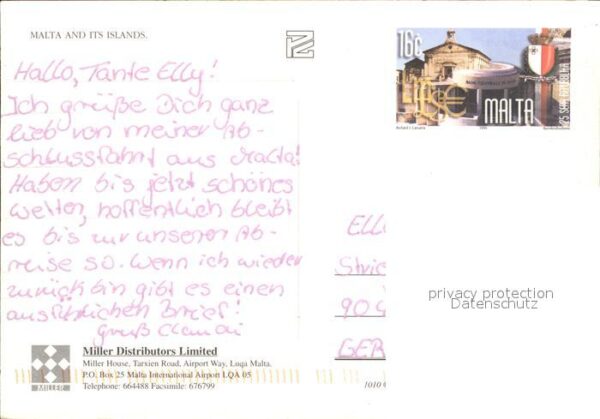 MALTA AND ITS ISLANDS.
Hallo, Tante Elly!
Ich grüße Dich ganz
lieb von meiner Ab-
schlussfahrt aus Malta!
Haben bis jetzt schönes
Wetter, hoffentlich bleibt
es bis zur unserer Ab-
reise so. Wenn ich wieder
zurück bin gibt es einen
ausführlichen Brief!
Gruß
16c
MALTA
ELL
Stri
904
GER
privacy protection
Datenschutz
MILLER
Miller Distributors Limited
Miller House, Tarxien Road, Airport Way, Luqa Malta.
P.O. Box 25 Malta International Airport LQA 05
Telephone: 664488 Facsimile: 676799
1010